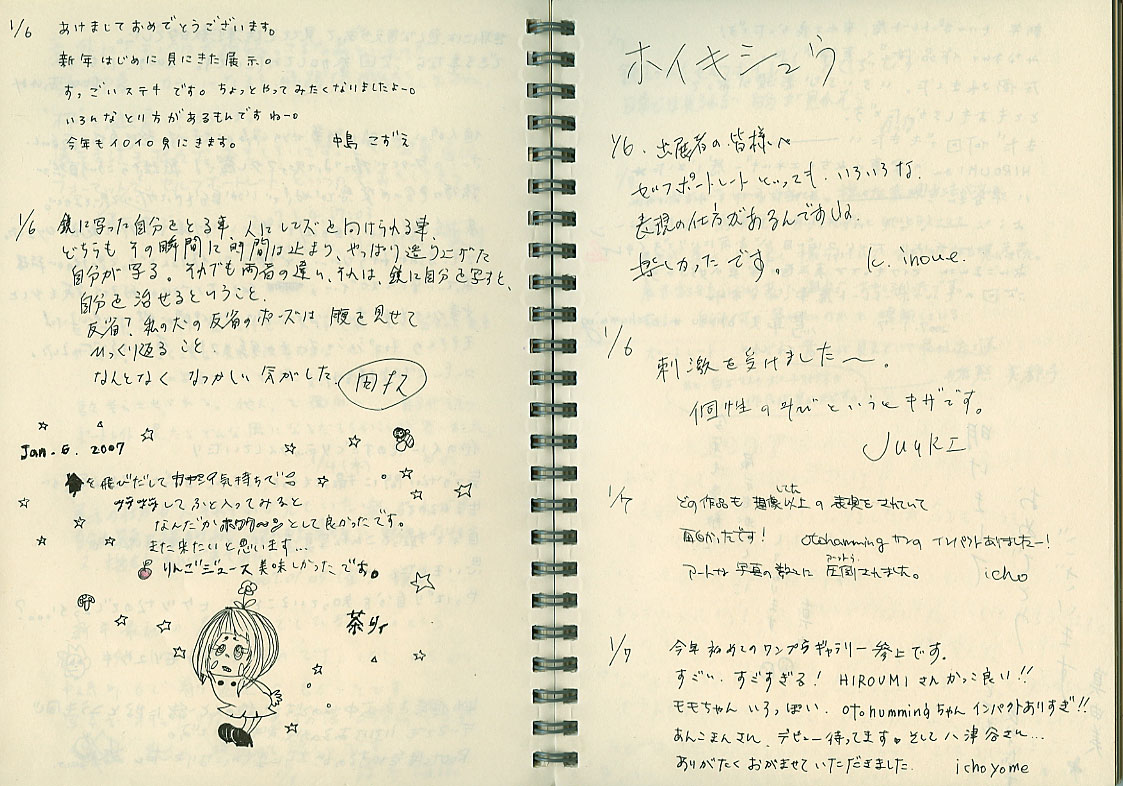 1/6 あけましておめでとうございます。
新年はじめに見にきた展示。
すっごいステキです。ちょっとやってみたくなりましたよー。
いろんなとり方があるもんですねー。
今年もイロイロ見にきます。 中島 こずえ
1/6 鏡に写った自分をとる事、人にレンズを向けられる事、
どちらも その瞬間に 時間は止まり、やっぱり違う上がた
自分が写る。それでも両者の違い、それは、鏡に自分を写すと、
自分を治せるということ。
反省？私の犬の反省のポーズは 腹を見せて
ひっくり返ること。
なんとなく なつかしい 気がした。
Jan. 6. 2007
を飛びだして 気持ちで
してふと入ってみると
なんだかホワァ〜ンとして良かったです。
また来たいと思います…
りんごジュース美味しかったです。
茶リィ
ホイキシュウ
1/6. 出展者の皆様へ
セルフポートレートといっても、いろいろな
表現の仕方があるんですね。
楽しかったです。 K. inoue.
1/6
刺激を受けましたー。
個性の叫びというとキザです。
JuyKI
1/7 どの作品も 想像以上の 表現をされていて
してた
面白かったです！ otohummingさんの インパクトありましたー！
アートな 写真の数々に 圧倒されました。 icho
アットウ
1/7 今年初めてのワンプラギャラリー参上です。
すごい、すごすぎる！ HIROUMIさんかっこ良い!!
モモちゃん いろっぽい、otohummingちゃん インパクトありすぎ!!
あんこまんさん、デビュー待ってます。そして八津谷さん…
ありがたくおがませていただきました. ichoyome